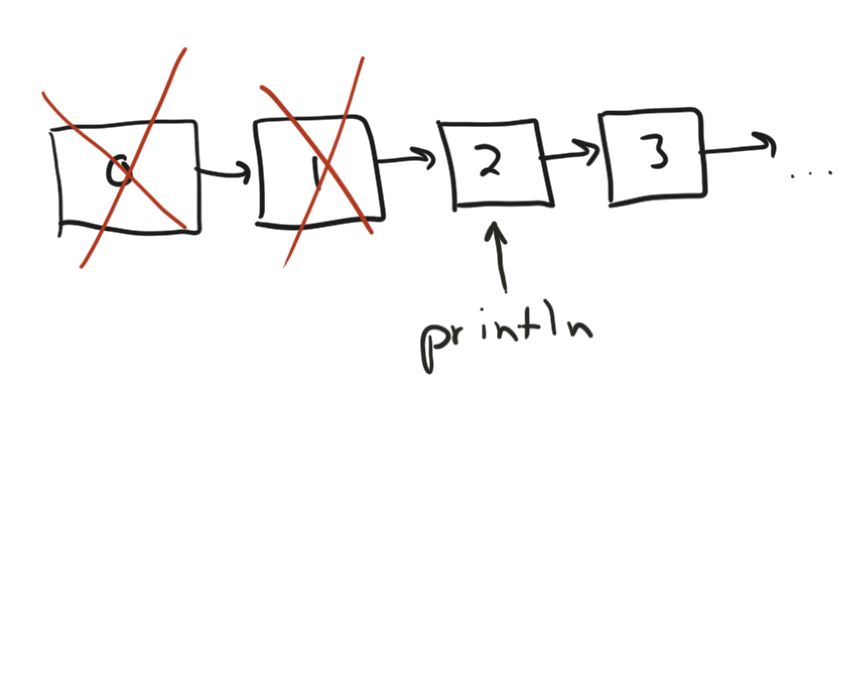 0 1 2 3 ...
println